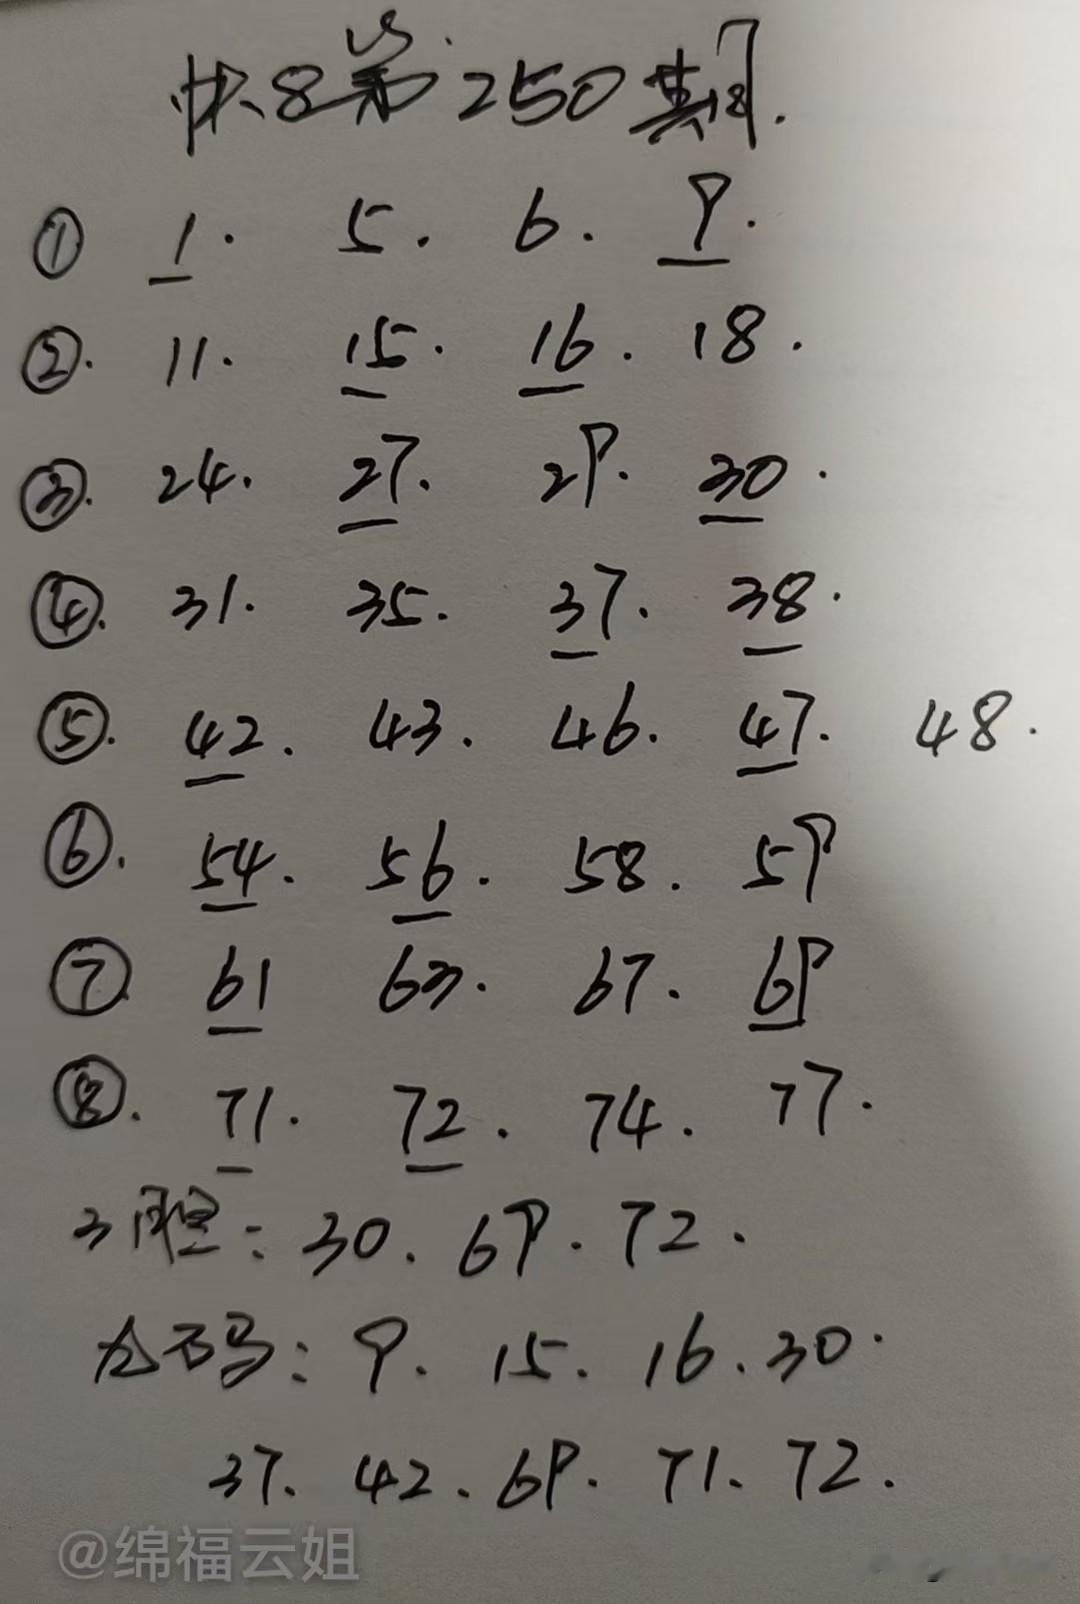 快8第250期.
① 1. 5. 6. 9.
②. 11. 15. 16. 18.
③. 24. 27. 29. 30.
④. 31. 35. 37. 38.
⑤. 42. 43. 46. 47. 48.
⑥. 54. 56. 58. 59
⑦. 61 63. 67. 69
⑧. 71. 72. 74. 77.
3胆: 30. 69. 72.
码: 9. 15. 16. 30.
37. 42. 69. 71. 72.
@绵福云姐